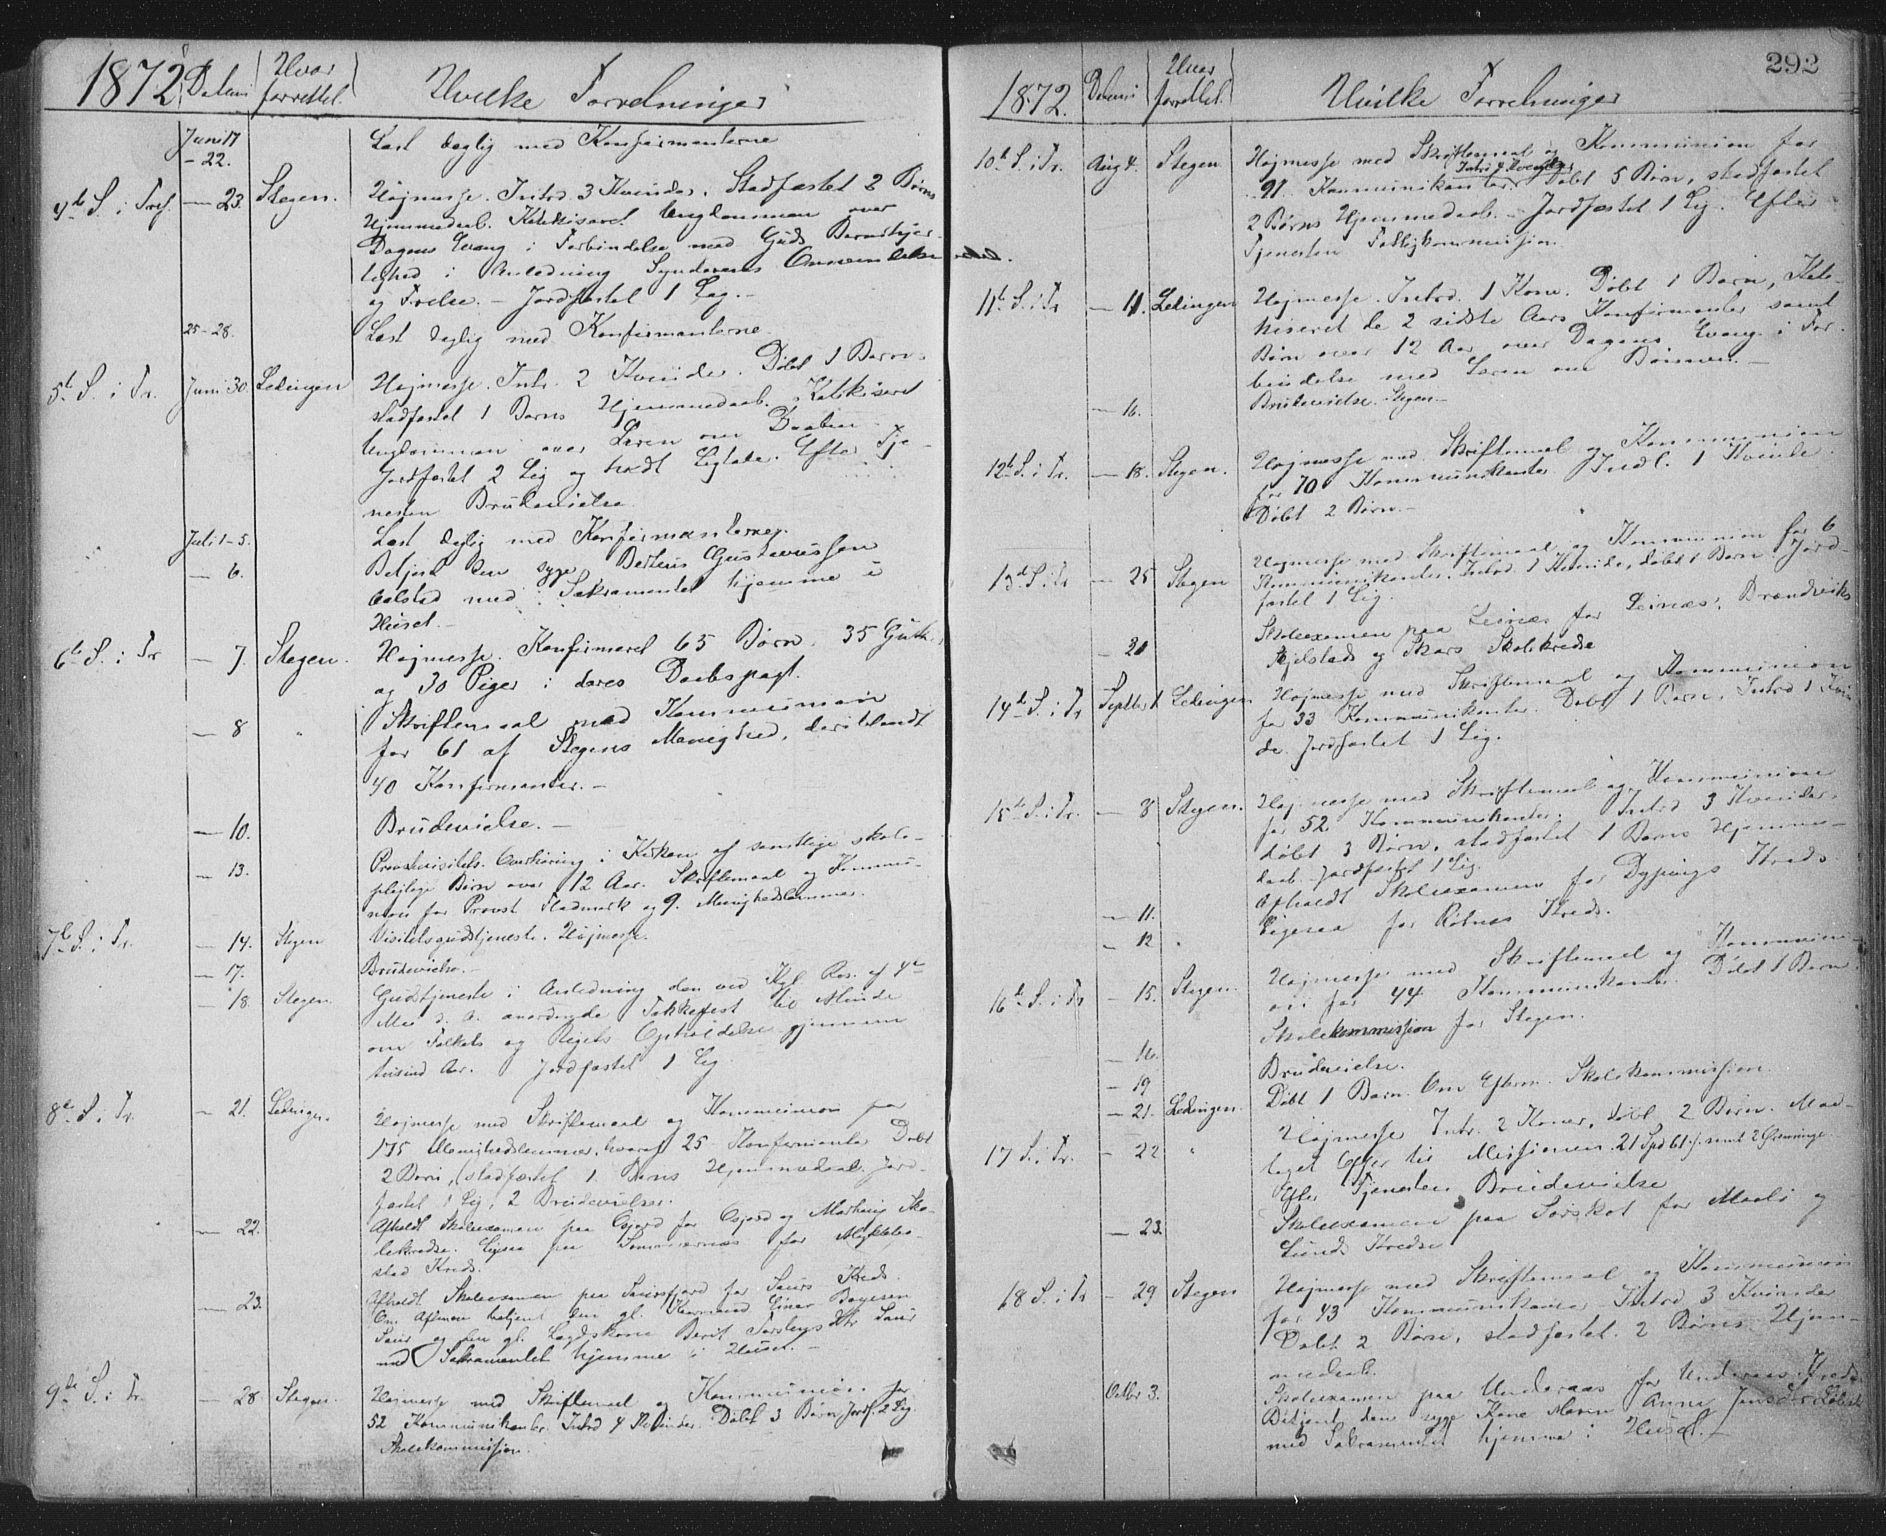 1872 Datum Hvor forrettet. Hvilke Forretninger
Juni 17 - 22. Læst daglig med Konfirmanterne
4de S. i Tref. — 23. Stegen. Højmesse. Introd. 3 Kvinder. Stadfæstet 2 Børns
Hjemmedaab. Katekiseret Ungdommen over
Dagens Evang. i Forbindelse med Guds Barmhjer-
tighed i Anledning Synderens Annammelse
og Frelse. — Jordfæstet 1 Lig. —
25-28. Læst daglig med Konfirmanterne.
5te S. i Tr. Juni 30. Lødingen Højmesse. Intr. 2 Kvinder. Døbt 1 Barn.
stadfæstet 1 Barns Hjemmedaab. Katekiseret
Ungdommen over Læren om Daaben.
Jordfæstet 2 Lig og holdt Ligtale. Efter Tje-
nesten Brudevielse.
Juli 1-5. Læst daglig med Konfirmanterne.
— 6. Betjent den syge Berteus Gustavussen
med Sakramentet hjemme i
Huset. —
6te S. i Tr — 7. Stegen. Højmesse. Konfirmeret 65 Børn. 35 Gutt.
og 30 Piger i deres Daabspagt.
— 8 " Skriftemaal med Kommunion
for 61 af Stegens Menighed, deriblandt
40 Konfirmanter. —
— 10. Brudevielse. —
— 13. Provstevisitats. Overhøring i Kirken af samtlige skole-
pligtige Børn over 12 Aar. Skriftemaal og Kommu-
nion for Provst Fladmark og 9 Menighedslemmer.
7de S. i Tr. — 14. Stegen Visitatsgudstjeneste. Højmesse.
— 17. Brudevielse. —
— 18. Stegen. Gudstjeneste i Anledning den ved Kgl. Res. af 4de
Mai d. A. anordnede Takkefest til Minde
om Folkets og Rigets Opholdelse gjennem
tusind Aar. Jordfæstet 1 Lig
8de S. i Tr. — 21. Lødingen. Højmesse med Skriftemaal og Kommunion for
175 Menighedslemmer, hvoraf 25 Konfirmanter Døbt
2 Børn, stadfæstet 1 Barns Hjemmedaab. Jord-
fæstet 1 Lig, 2 Brudevielser.
— 22. Afholdt Skoleexamen paa Osjord for Osjord og Sko-
lekredse. Ligesaa paa Sommernæs for Myklebo-
stad Kreds.
— 23. Afholdt Skoleexamen paa Saursfjord for Saurs Kreds.
Om Aftenen betjent den gl. Einar
Saur og den gl. Lægdskone Berit Torslensdtr Saur
med Sakramentet hjemme i Huset. —
9de S. i Tr. — 28. Stegen. Højmesse med Skriftemaal og Kommunion for
52 Kommunikanter. Introd 4 Kvinder. Døbt 3 Børn. Jordf. 2 Lig.
Skolekommission.
292
1872. Datum Hvor forrettet. Hvilke Forretninger
10de S. i Tr. Aug 4. Stegen Højmesse med Skriftemaal og Kommunion for
91 Kommunikanter. Intr. 4 Kvinder Døbt 5 Børn, stadfæstet
2 Børns Hjemmedaab. — Jordfæstet 1 Lig. Efter
Tjenesten Fattigkommission.
11te S. i Tr — 11. Lødingen Højmesse. Introd. 1 Kone. Døbt 1 Barn, Kate-
kiseret de 2 sidste Aars Konfirmanter samt
Børn over 12 Aar over Dagens Evang. i For-
bindelse med Læren om Bønnen. —
— 16. Brudevielse. Stegen. —
12te S. i Tr. — 18. Stegen. Højmesse med Skriftemaal og Kommunion
for 70 Kommunikanter. Indl. 1 Kvinde.
Døbt 2 Børn. —
13de S. i Tr — 25 Stegen Højmesse med Skriftemaal og Kommunion for 6
Kommunikanter. Introd. 1 Kvinde, døbt 1 Barn. Jord-
fæstet 1 Lig.
Skoleexamen paa Leinæs for Leinæs, Brændviks
Kjelstads og Skars Skolekredse
14de S. i Tr Septbr 1 Lødingen Højmesse med Skriftemaal og Kommunion
for 33 Kommunikanter. Døbt 1 Barn, Introd 1 Kvin-
de. Jordfæstet 1 Lig.
15de S. i Tr. — 8 Stegen. Højmesse med Skriftemaal og Kommunion
for 52 Kommunikanter. Introd 3 Kvinder.
døbt 3 Børn, stadfæstet 1 Barns Hjemme-
daab. Jordfæstet 1 Lig.
— 11. Afholdt Skoleexamen for Dypings Kreds
— 12 " Ligesaa for Røtnæs Kreds.
16de S. i Tr — 15. Stegen Højmesse med Skriftemaal og Kommuni-
on for 44 Kommunikanter. Døbt 1 Barn.
— 16. Skolekommission for Stegen.
— 19 Brudevielse.
— 21. Lødingen. Døbt 1 Barn. Om Efterm. Skolekommission.
17 S. i Tr. — 22 " Højmesse Intr. 2 Koner, døbt 2 Børn. Mod-
taget Offer til Missionen. 21 Spd 61 samt 2
Efter Tjenesten Brudevielse
— 23. Skoleexamen paa Forskot for Maalø og
Lunds Kredse
18 S. i Tr — 29 Stegen Højmesse med Skriftemaal og Kommunion
for 43 Kommunikanter Introd 3 Kvinder
Døbt 2 Børn, stadfæstet 2 Børns Hjem-
medaab.
Octbr 3. Skoleexamen paa Underaas for Underaas Kreds.
Betjent den syge Kone Maren Anna Jensdtr
med Sakramentet hjemme i Huset. —